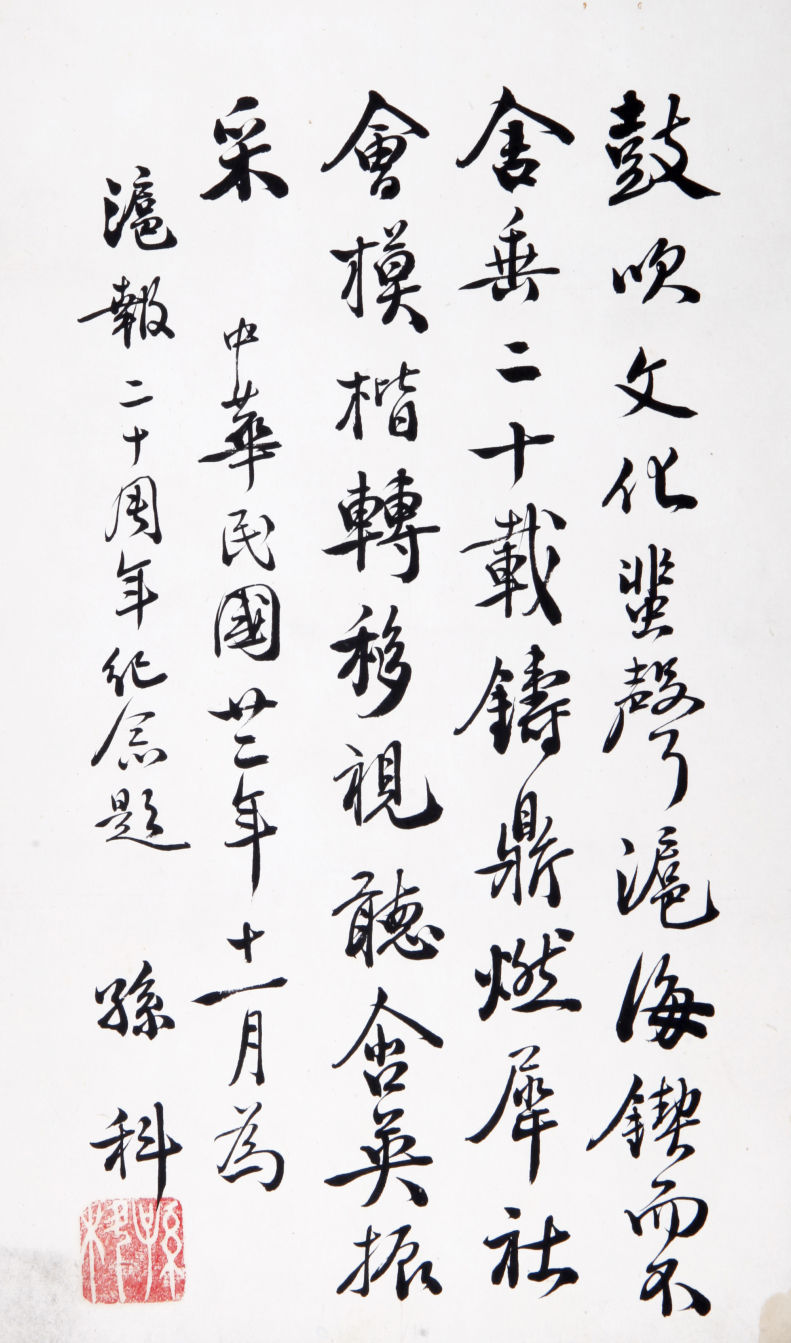 鼓吹文化蜚聲滬海鍥而不
舍垂二十載鑄鼎燃犀社
會模楷轉移視聽含英振
采
中華民國廿二年十一月為
滬報二十周年紀念題
孫科
孫科